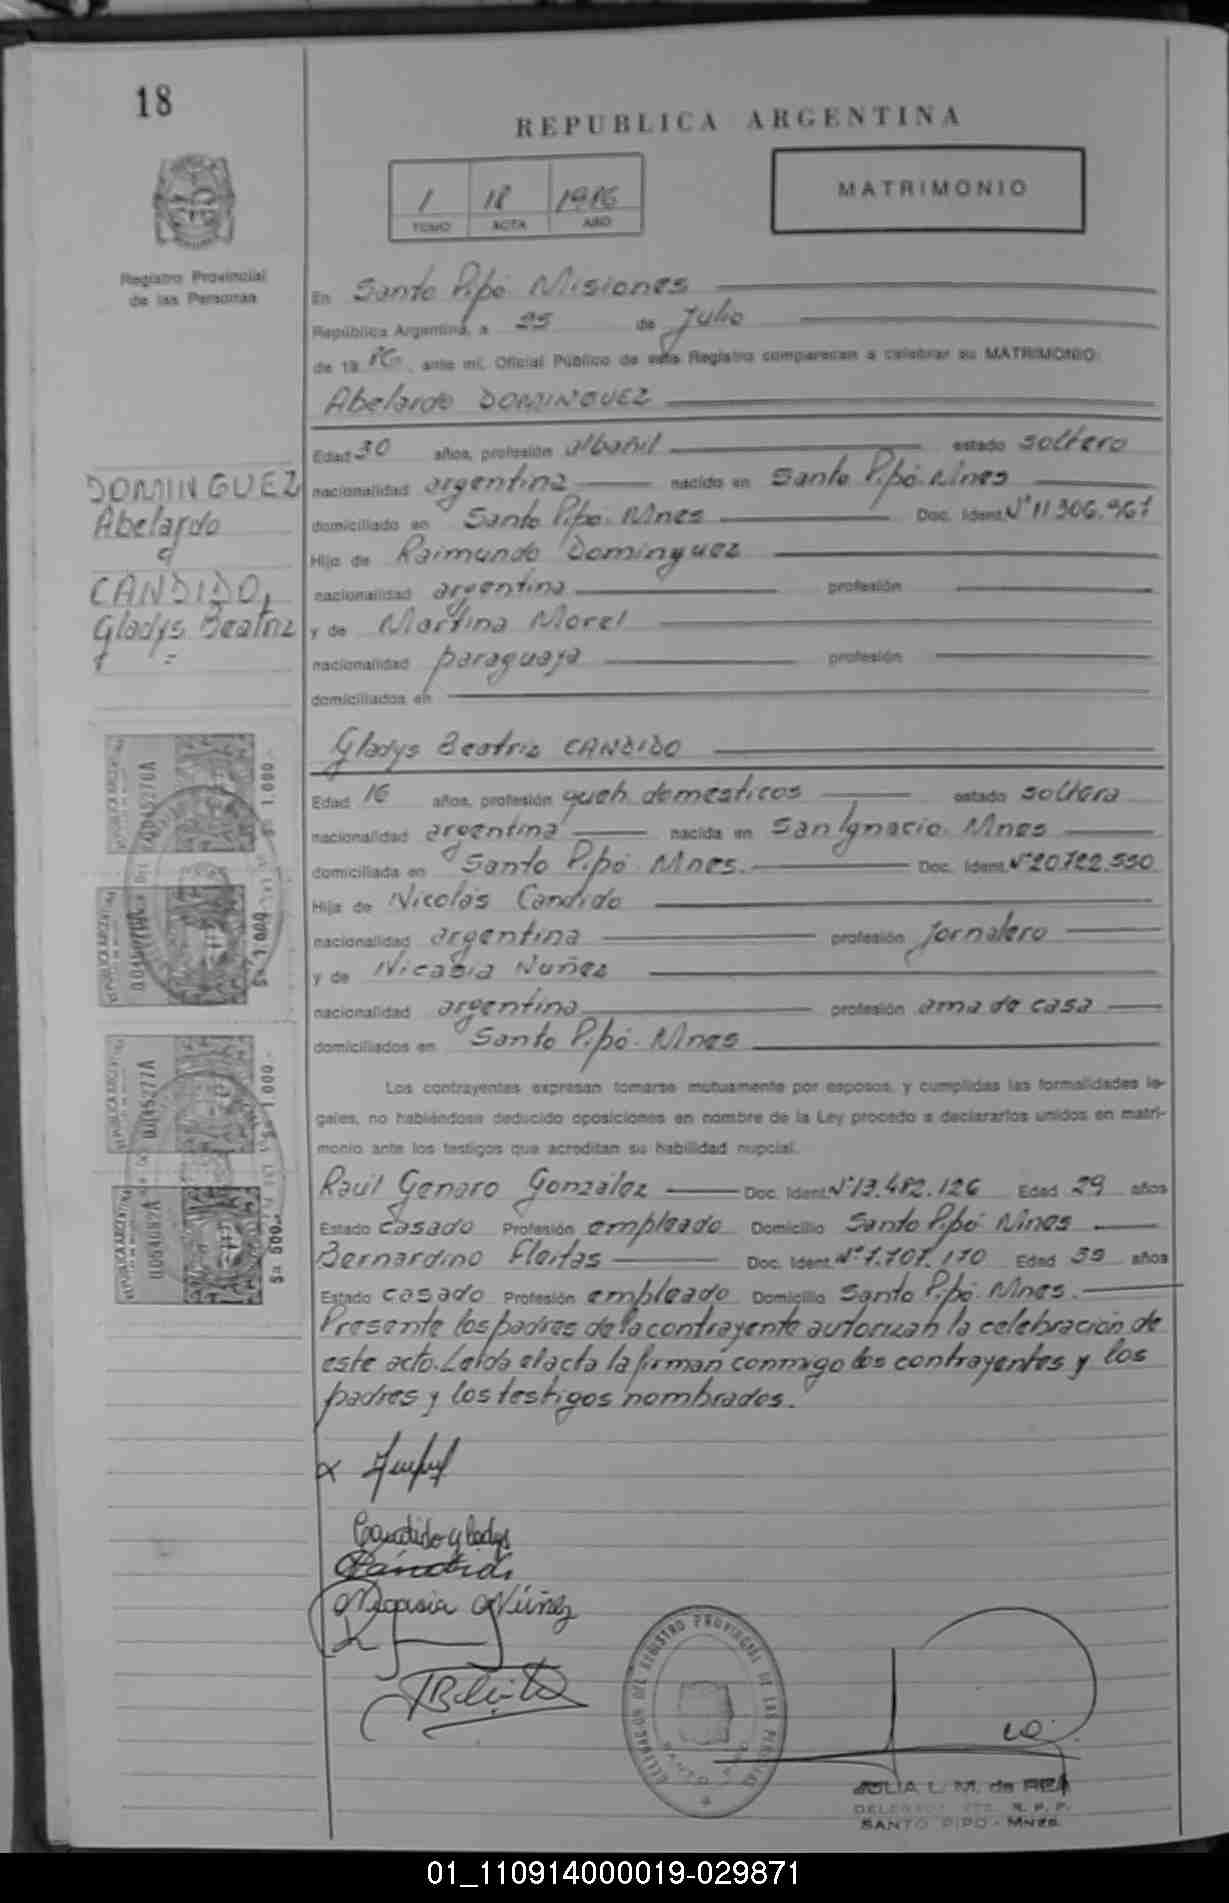 18
REPUBLICA ARGENTINA
MATRIMONIO
1 18 1986
TOMO ACTA AÑO
Registro Provincial
de las Personas
En Santo Pipó Misiones
República Argentina, a 25 de Julio
de 19 86, ante mí, Oficial Público de este Registro comparecen a celebrar su MATRIMONIO:
Abelardo DOMINGUEZ
Edad 30 años, profesión albañil estado soltero
nacionalidad argentina nacido en Santo Pipó. Mnes
domiciliado en Santo Pipó. Mnes Doc. Ident. Nº 11.306.967
Hijo de Raimundo Dominguez
nacionalidad argentina profesión
y de Martina Morel
nacionalidad paraguaya profesión
domiciliados en
DOMINGUEZ
Abelardo
c/
CANDIDO,
Gladys Beatriz
Gladys Beatriz CANDIDO
Edad 16 años, profesión queh. domésticos estado soltera
nacionalidad argentina nacida en San Ignacio. Mnes
domiciliada en Santo Pipó. Mnes. Doc. Ident. Nº 20.722.550
Hija de Nicolás Candido
nacionalidad argentina profesión jornalero
y de Nicasia Nuñez
nacionalidad argentina profesión ama de casa
domiciliados en Santo Pipó. Mnes
Los contrayentes expresan tomarse mutuamente por esposos, y cumplidas las formalidades le-
gales, no habiéndose deducido oposiciones en nombre de la Ley procedo a declararlos unidos en matri-
monio ante los testigos que acreditan su habilidad nupcial.
Raúl Genaro González Doc. Ident. Nº 13.482.126 Edad 29 años
Estado casado Profesión empleado Domicilio Santo Pipó Mnes
Bernardino Fleitas Doc. Ident. Nº 7.707.170 Edad 39 años
Estado casado Profesión empleado Domicilio Santo Pipó. Mnes.
Presente los padres de la contrayente autorizan la celebración de
este acto. Leída el acta la firman conmigo los contrayentes y los
padres y los testigos nombrados.
REPUBLICA ARGENTINA $a 1.000.-
REPUBLICA ARGENTINA $a 1.000
REPUBLICA ARGENTINA $a 1.000.-
REPUBLICA ARGENTINA $a 500.-
Candido gladys
Nicasia Núñez
DELEGACION DEL REGISTRO PROVINCIAL DE LAS PERSONAS
JULIA L. M. de REA
SANTO PIPO - MNES.
01_110914000019-029871